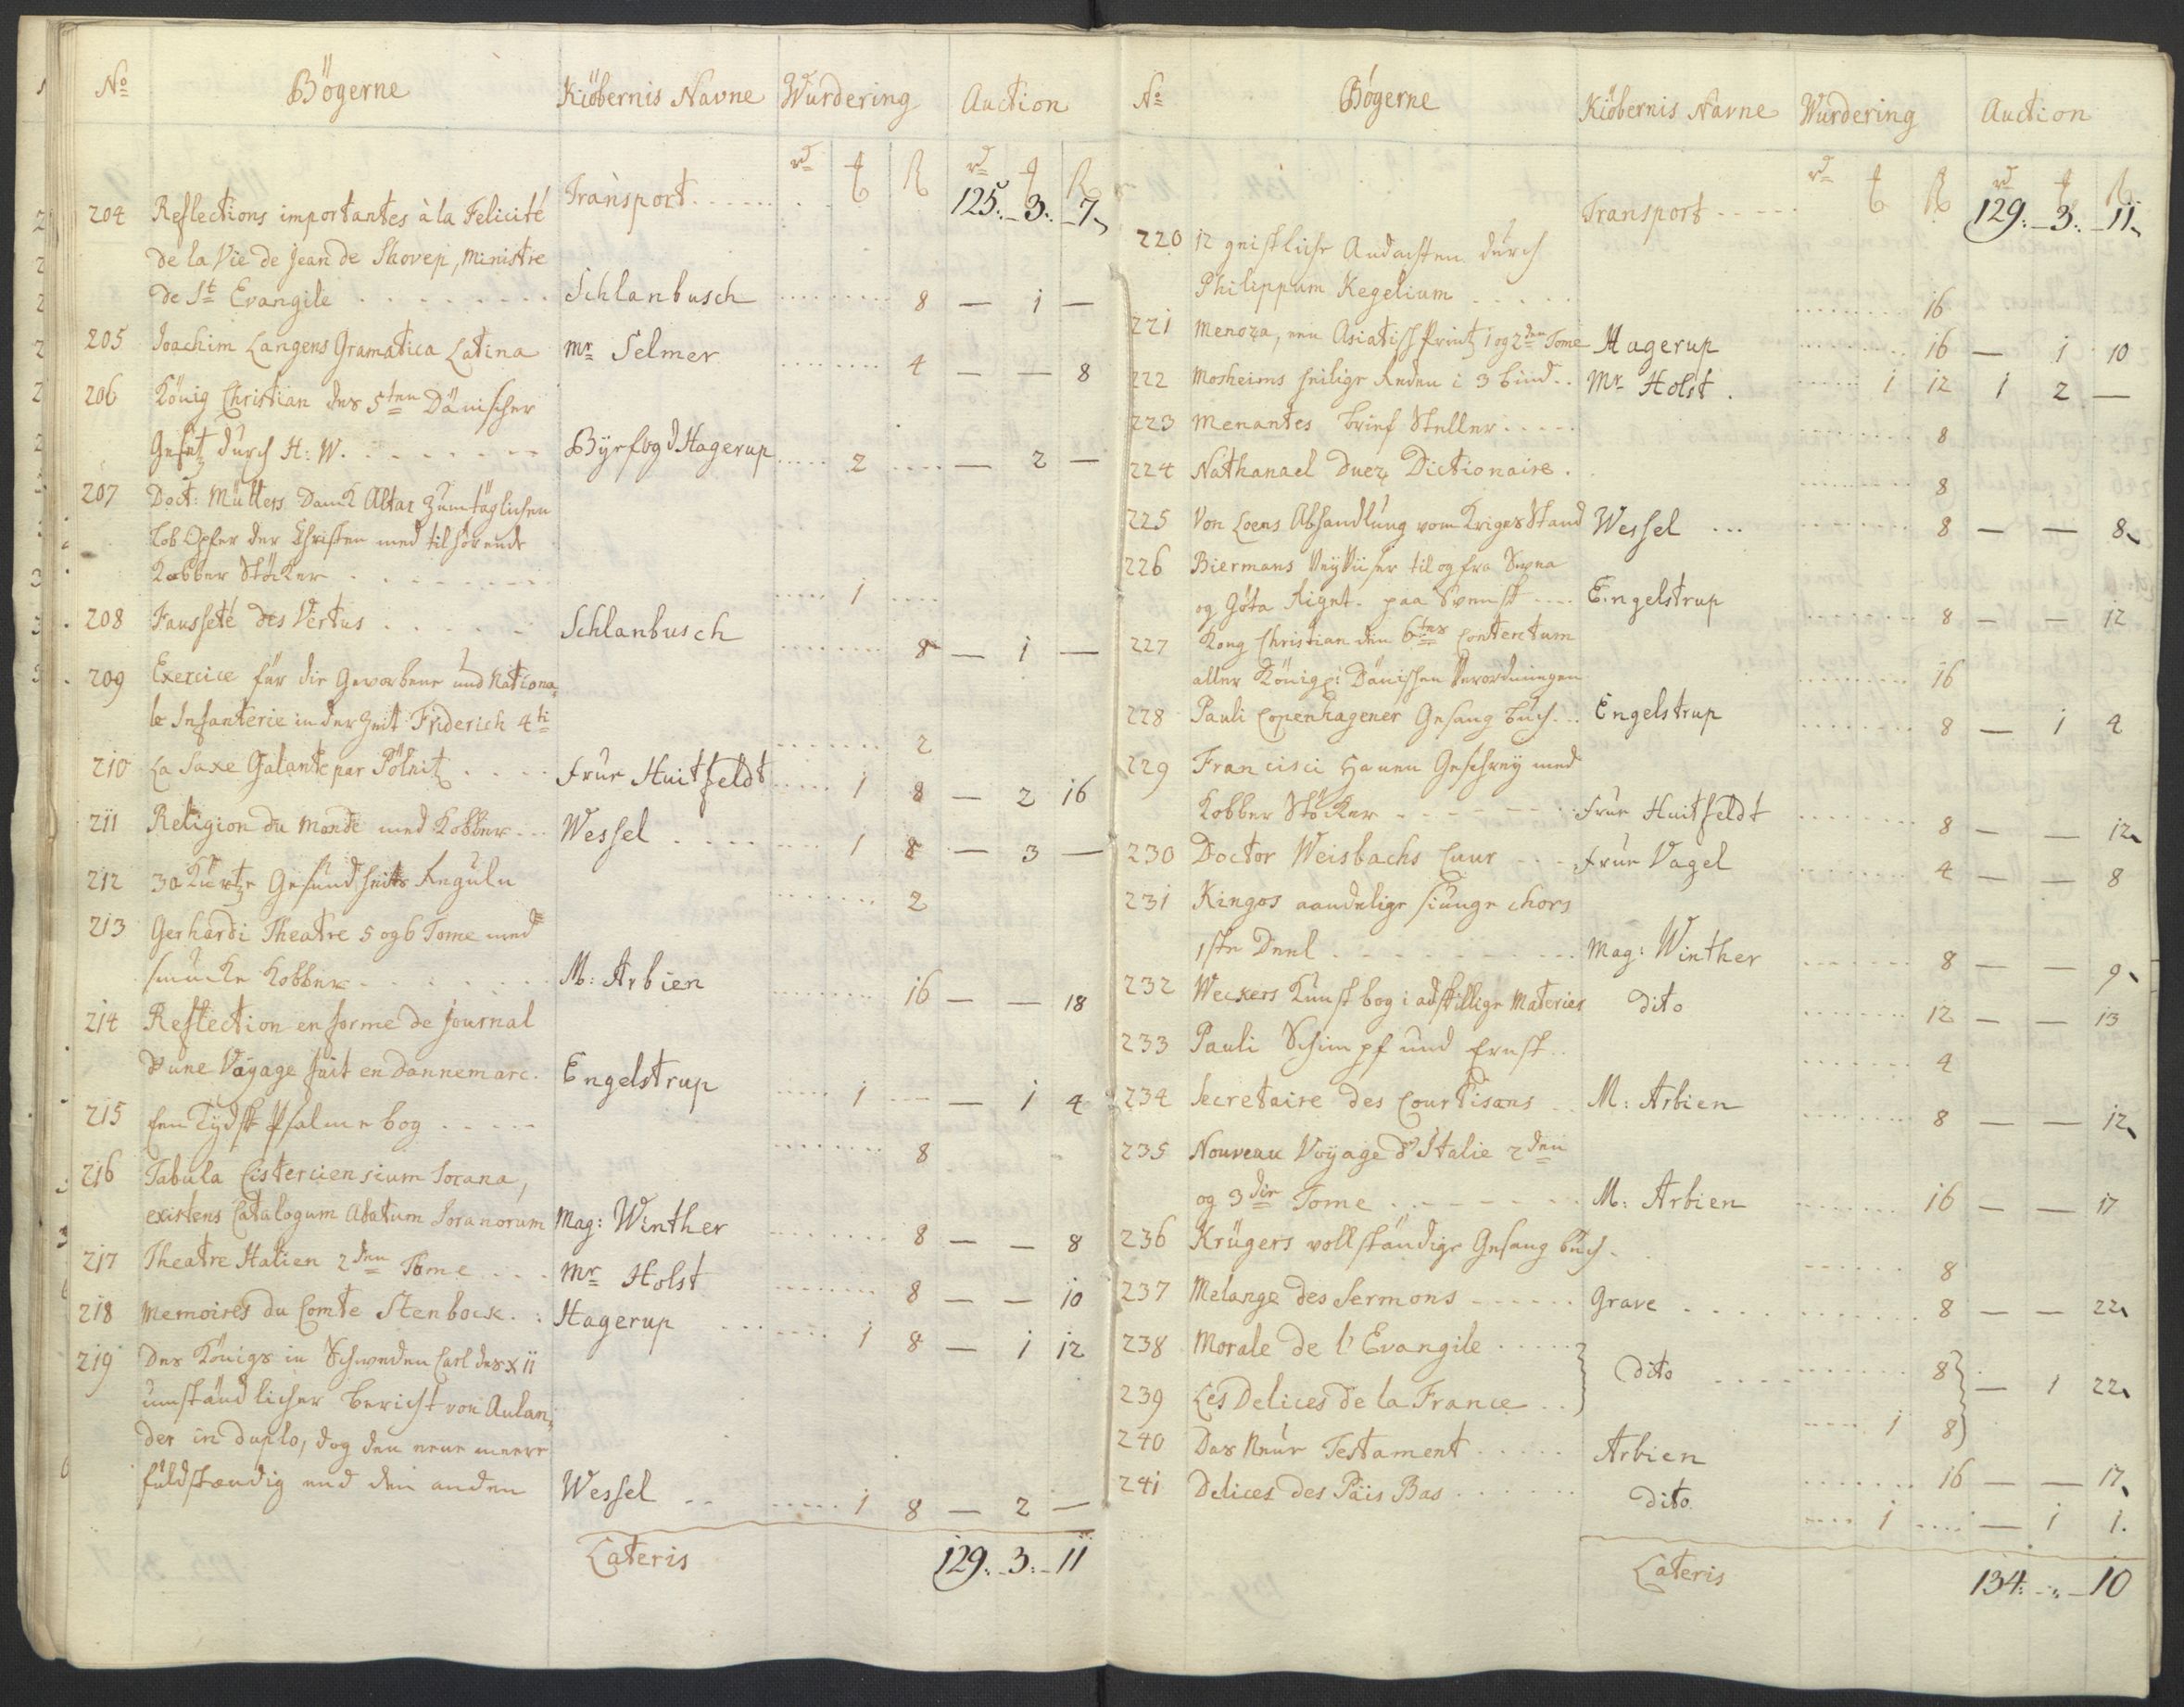 No Bögerne Kiöbernis Navne Wurdering Auction
rd ꝑ ß rd ꝑ ß
Transport . . . . . . 125. 3. 7.
204 Reflections importantes à la Felicité
de la Vie de Jean de Skovep, Ministre
de St Evangile . . . . Schlanbusch 8 — 1 —
205 Joachim Langens Gramatica Latina Mr Selmer 4 — — 8
206 König Christian des 5ten Dänischer
Gesetz durch H: W. . . . Byefogd Hagerup 2 — 2 —
207 Doct: Müllers Danck Altar zum täglichen
Lob Opfer der Christen med tilhörende
Kobber Stöcker . . . . 1
208 Fausseté des Vertus . . . . Schlanbusch 8 — 1 —
209 Exercice für die Geworbene und Nationa,
le Infanterie in der Zeit Friderich 4ti 2
210 La Saxe Galante par Pölnitz . . . Frue Huitfeldt 1 8 — 2 16
211 Religion du Monde med Kobber . . . Wessel . . . . 1 8 — 3 —
212 30 Kurtze Gesundheits Reguln 2
213 Gerhardi Theatre 5 og 6 Tome med
smucke Kobber . . . . M: Arbien 16 — — 18
214 Reflection en forme de Journal
d'une Voyage fait en Dannemarc. Engelstrup 1 — 1 4
215 Een Tydsk Psalme bog . . . . 8
216 Tabula Cisterciensium Sorana,
existens Catalogum Abatum Soranorum Mag: Winther 8 — — 8
217 Theatre Italien 2den Tome . . . Mr Holst 8 — — 10
218 Memoires du Comte Stenbock . : Hagerup . . . 1 8 — 1 12
219 Des Königs in Schweden Carl des XII
umständlicher bericht von Aulan,
der in duplo, dog den eene meere
fuldstændig end den anden Wessel . . 1 8 — 2 —
Lateris 129. 3. 11
No Bögerne Kiöbernis Navne Wurdering Auction
rd ꝑ ß rd ꝑ ß
Transport . . . . . 129. 3. 11.
220 12 geistliche Andachten durch
Philippum Kegelium . . . . . 16
221 Menoza, een Asiatisk Printz 1 og 2den Tome Hagerup 16 — 1 10
222 Mosheims heilige Reden i 3 bind . . Mr Holst . 1 12 1 2 —
223 Menantes brief Steller . . . . . 8
224 Nathanael Duez Dictionaire . 8
225 Von Loens Abhandlung vom Kriges Stand Wessel . . . 8 — — 8.
226 Biermans Veyviiser til og fra Svea
og Göta Riget. paa Svensk . . . . Engelstrup 8 — — 12
227 Kong Christian den 6tes Contentum
aller Königl: Dänischen Verordningen 16
228 Pauli Copenhagener Gesang buch . . . Engelstrup 8 — 1 4
229 Francisci Hanen Geschrey med
Kobber Stöcker . . . . Frue Huitfeldt 8 — — 12.
230 Doctor Weisbachs Cuur . . . Frue Vagel 4 — — 8
231 Kingos aandelige siunge chors
1ste Deel . . . . . Mag: Winther 8 — — 9.
232 Weckers Kunst bog i adskillige Materies dito 12 — — 13
233 Pauli Schimpf und Ernst . . 4
234 Secretaire des Courtisans . . M: Arbien 8 — — 12.
235 Nouveau Voyage d'Italie 2den
og 3die Tome . . . . . M: Arbien 16 — — 17
236 Krügers vollständige Gesang buch . 8
237 Melange des Sermons . . . . . Grave . . . . 8 — — 22.
238 Morale de l'Evangile . . . . .
dito . . . . 8 — 1 22.
239 Les Delices de la France . . 1 8
240 Das Neue Testament . . . . . Arbien 16 — — 17.
241 Delices des Päis Bas . . . . . dito. 1 — 1 1.
Lateris 134. „ 10